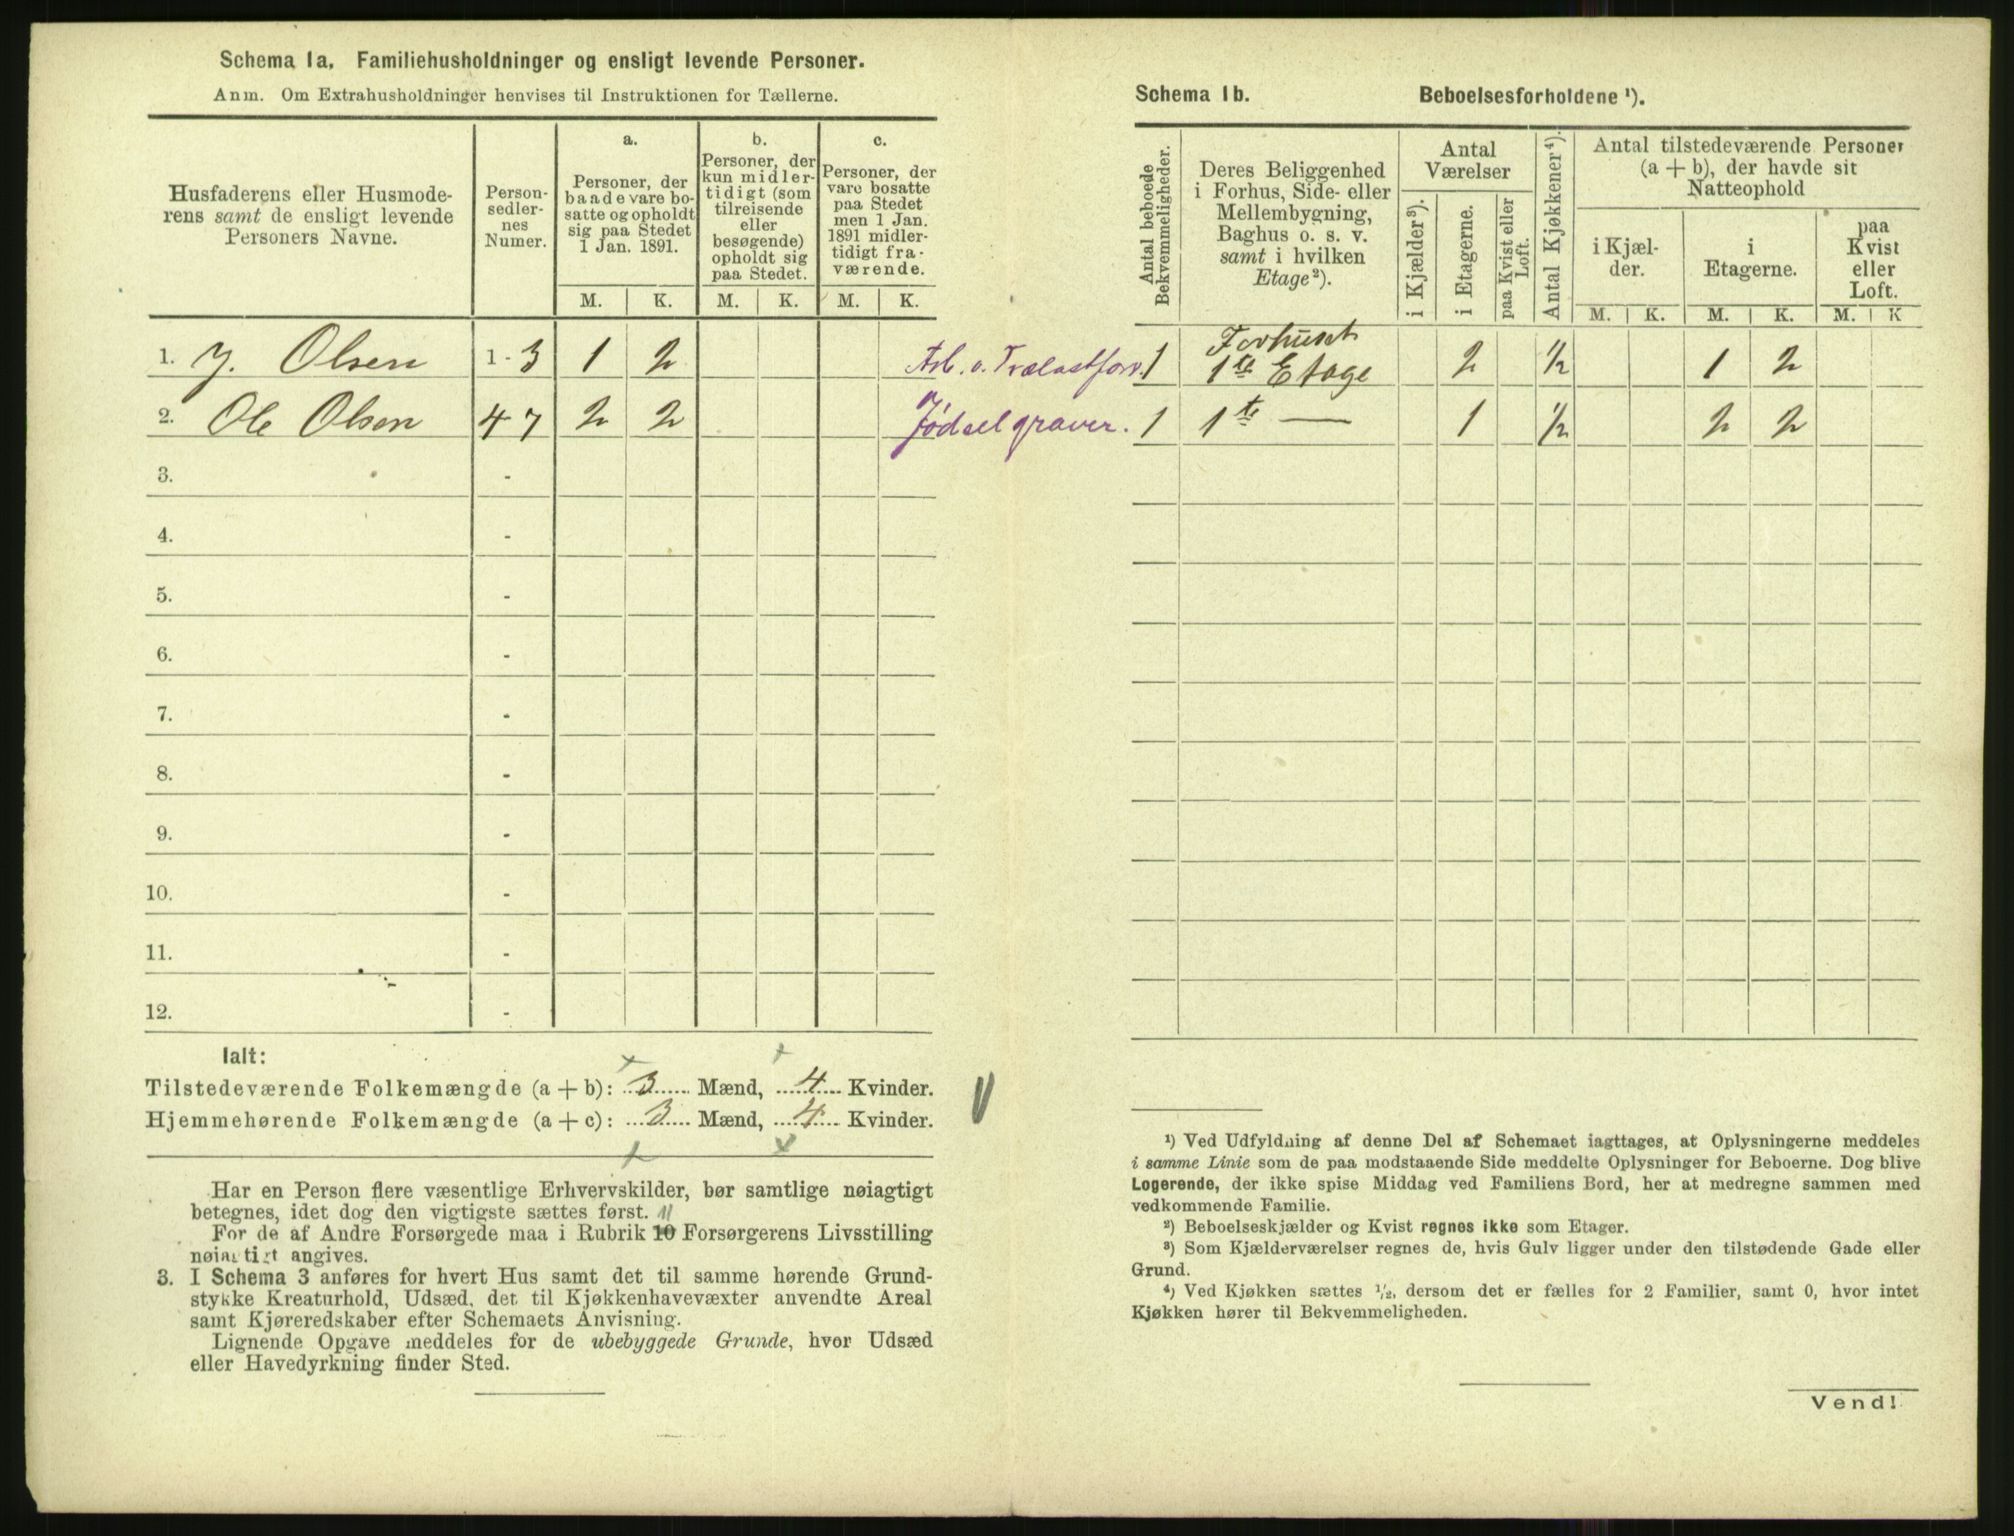 Schema 1a. Familiehusholdninger og ensligt levende Personer.
Anm. Om Extrahusholdninger henvises til Instruktionen for Tællerne.
Husfaderens eller Husmode-
rens samt de ensligt levende
Personers Navne.
Person-
sedler-
nes
Numer.
a.
Personer, der
baade vare bo-
satte og opholdt
sig paa Stedet
1 Jan. 1891.
b.
Personer, der
kun midler-
tidigt (som
tilreisende
eller
besøgende)
opholdt sig
paa Stedet.
c.
Personer, der
vare bosatte
paa Stedet
men 1 Jan.
1891 midler-
tidigt fra-
værende.
M. K. M. K. M. K.
1. J. Olsen 1-3 1 2 Arb. o. Trælastforr.
2. Ole Olsen 4-7 2 2 Jødselgraver.
3. -
4. -
5. -
6. -
7. -
8. -
9. -
10. -
11. -
12. -
Ialt:
Tilstedeværende Folkemængde (a + b): 3 Mænd, 4 Kvinder.
Hjemmehørende Folkemængde (a + c): 3 Mænd, 4 Kvinder.
Har en Person flere væsentlige Erhvervskilder, bør samtlige nøiagtigt
betegnes, idet dog den vigtigste sættes først. 11
For de af Andre Forsørgede maa i Rubrik 10 Forsørgerens Livsstilling
nøiagtigt angives.
3. I Schema 3 anføres for hvert Hus samt det til samme hørende Grund-
stykke Kreaturhold, Udsæd, det til Kjøkkenhavevæxter anvendte Areal
samt Kjøreredskaber efter Schemaets Anvisning.
Lignende Opgave meddeles for de ubebyggede Grunde, hvor Udsæd
eller Havedyrkning finder Sted.
Schema 1b. Beboelsesforholdene ¹).
Antal beboede
Bekvemmeligheder.
Deres Beliggenhed
i Forhus, Side- eller
Mellembygning,
Baghus o. s. v.
samt i hvilken
Etage²).
Antal
Værelser
i Kjælder³).
i Etagerne.
paa Kvist eller
Loft.
Antal Kjøkkener⁴).
Antal tilstedeværende Personer
(a + b), der havde sit
Natteophold
i Kjæl-
der.
i
Etagerne.
paa
Kvist
eller
Loft.
M. K. M. K. M. K
1 Forhuset
1ste Etage 2 ½ 1 2
1 1ste — 1 ½ 2 2
¹) Ved Udfyldning af denne Del af Schemaet iagttages, at Oplysningerne meddeles
i samme Linie som de paa modstaaende Side meddelte Oplysninger for Beboerne. Dog blive
Logerende, der ikke spise Middag ved Familiens Bord, her at medregne sammen med
vedkommende Familie.
²) Beboelseskjælder og Kvist regnes ikke som Etager.
³) Som Kjælderværelser regnes de, hvis Gulv ligger under den tilstødende Gade eller
Grund.
⁴) Ved Kjøkken sættes ½, dersom det er fælles for 2 Familier, samt 0, hvor intet
Kjøkken hører til Bekvemmeligheden.
Vend!